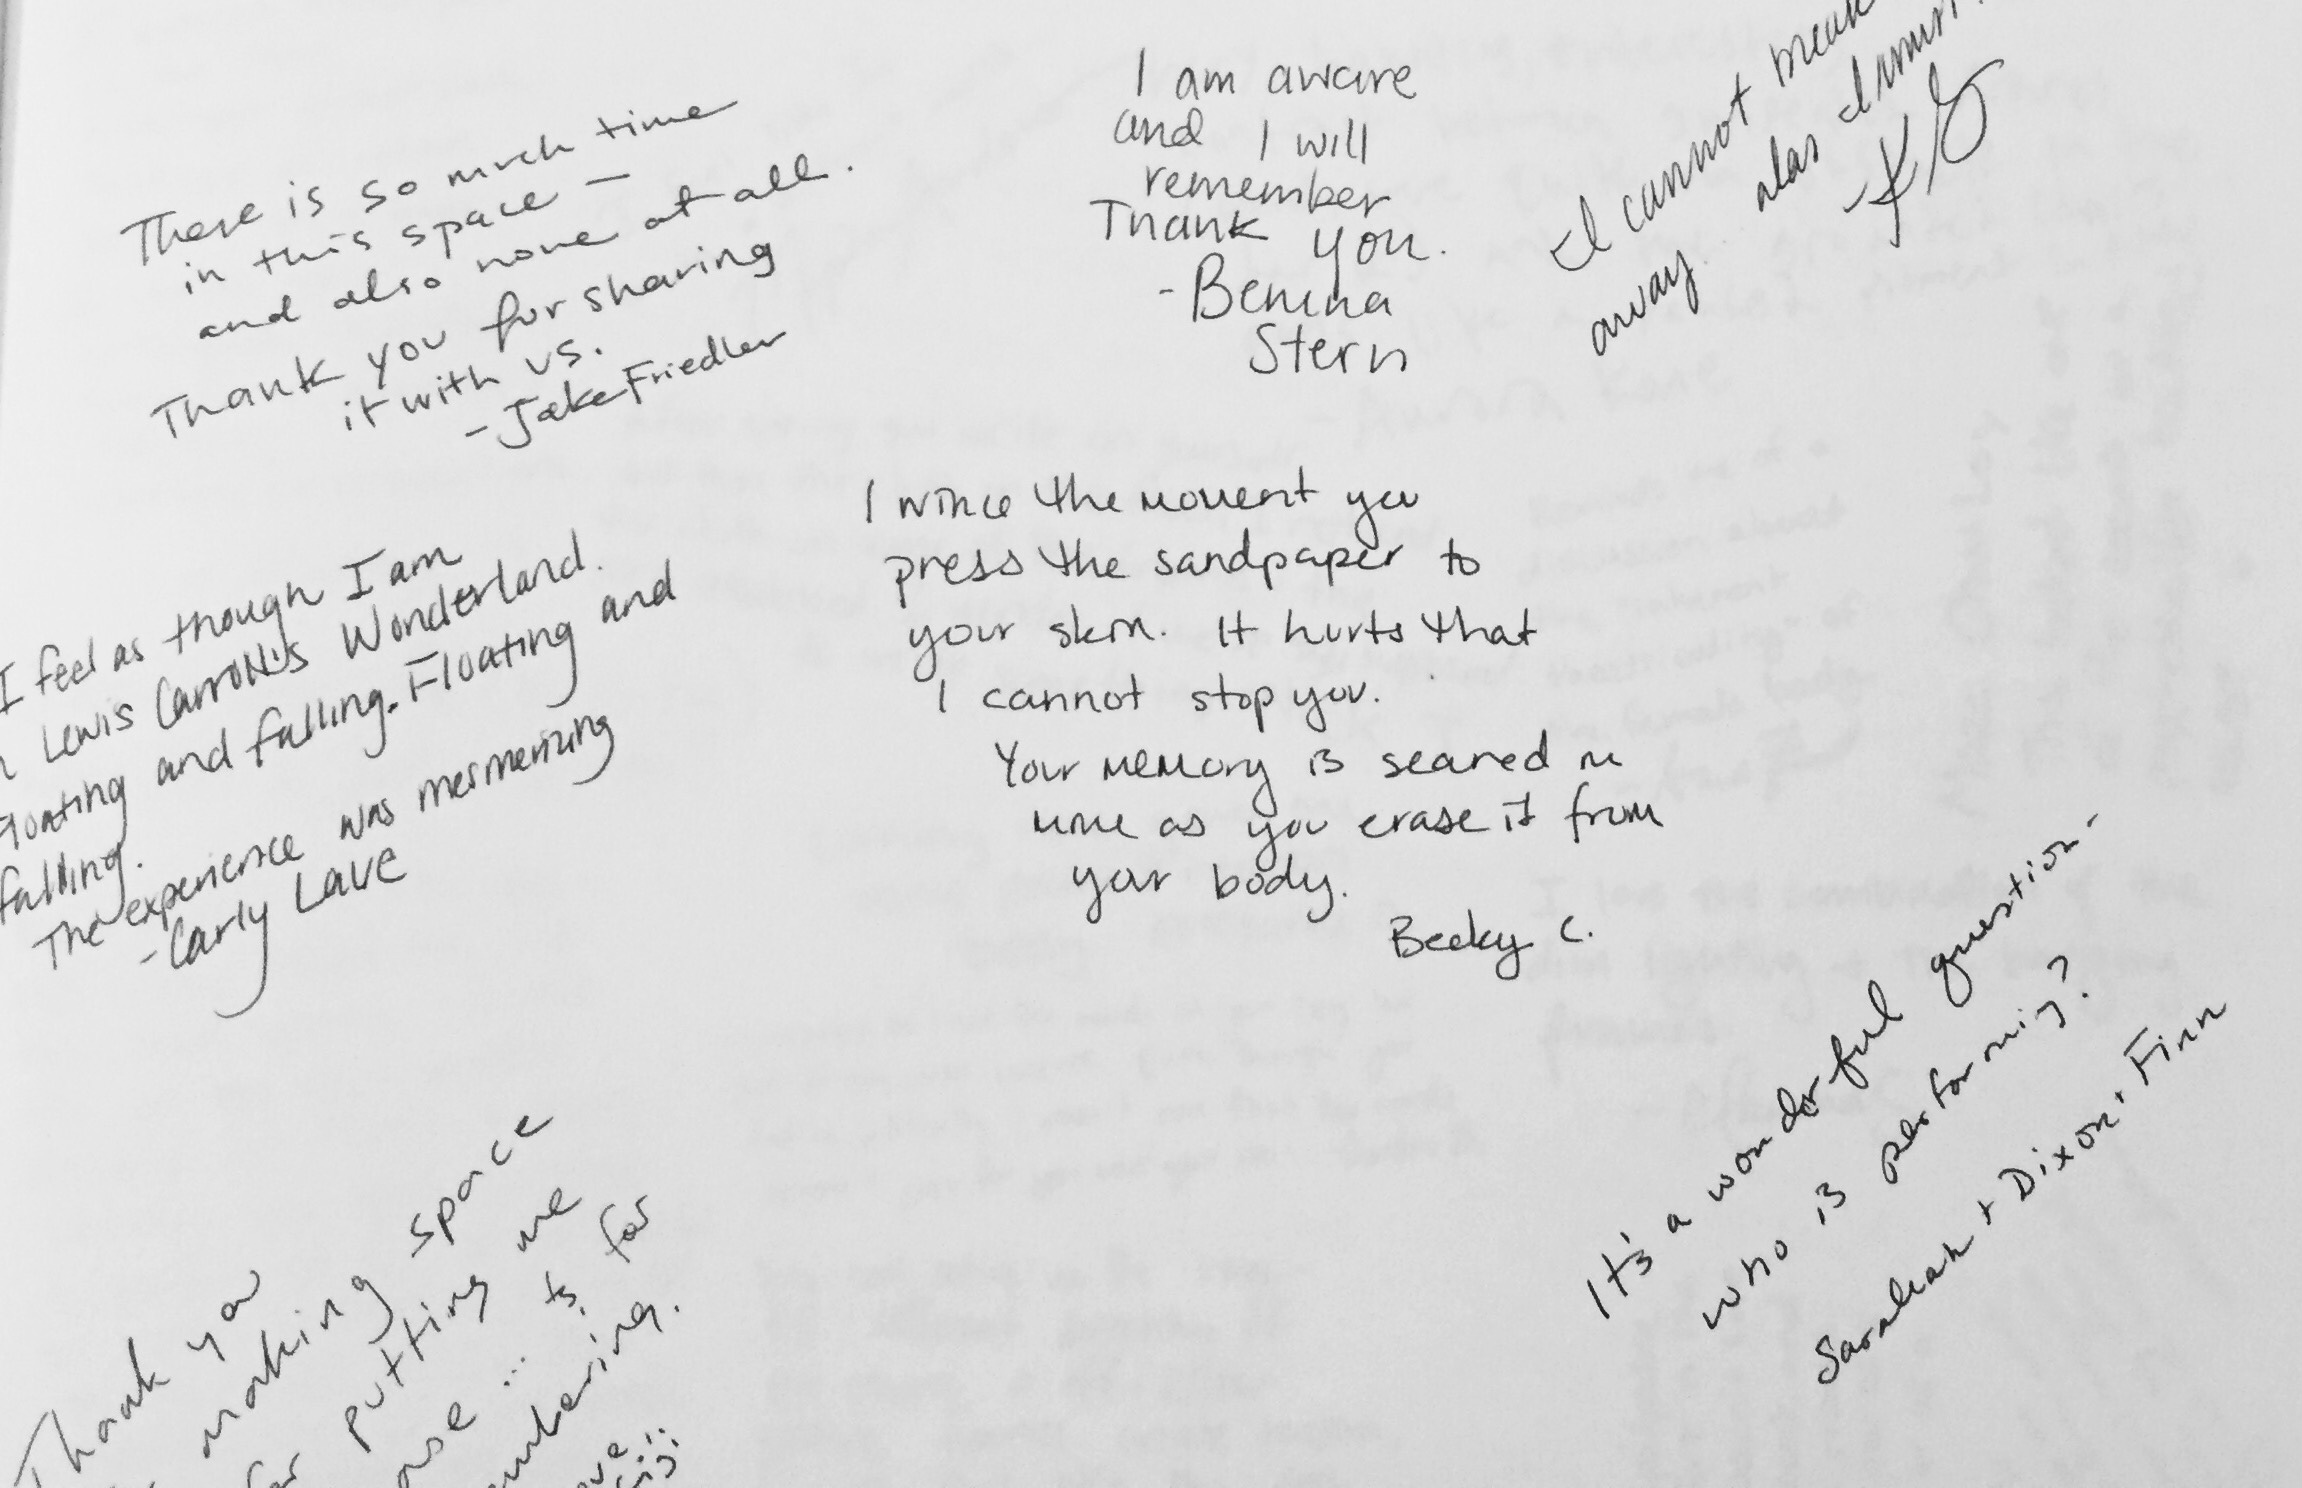 There is so much time
in this space —
and also none at all.
Thank you for sharing
it with us.
- Jake Friedler
I am aware
and I will
remember
Thank you.
- Benina
Stern
I cannot
away. alas
I feel as though I am
Lewis Carroll's Wonderland.
Floating and falling. Floating and
falling.
The experience was mesmerizing
- Carly Lave
I wince the moment you
press the sandpaper to
your skin. It hurts that
I cannot stop you.
Your memory is seared in
mine as you erase it from
your body.
Becky C.
It's a wonderful question -
who is performing?
Sarahleah + Dixon, Finn
Thank you
making space
for putting me
to for